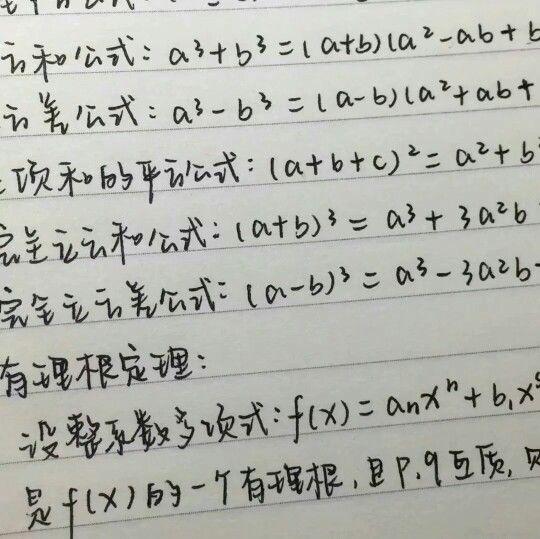 方和公式: a³+b³=(a+b)(a²-ab+b
方差公式: a³-b³=(a-b)(a²+ab+
项和的平方公式: (a+b+c)²=a²+b²
完全立方和公式: (a+b)³=a³+3a²b
完全立方差公式: (a-b)³=a³-3a²b-
有理根定理:
设整系数多项式: f(x)=anxⁿ+b₁x
是f(x)的一个有理根,且p.q互质,